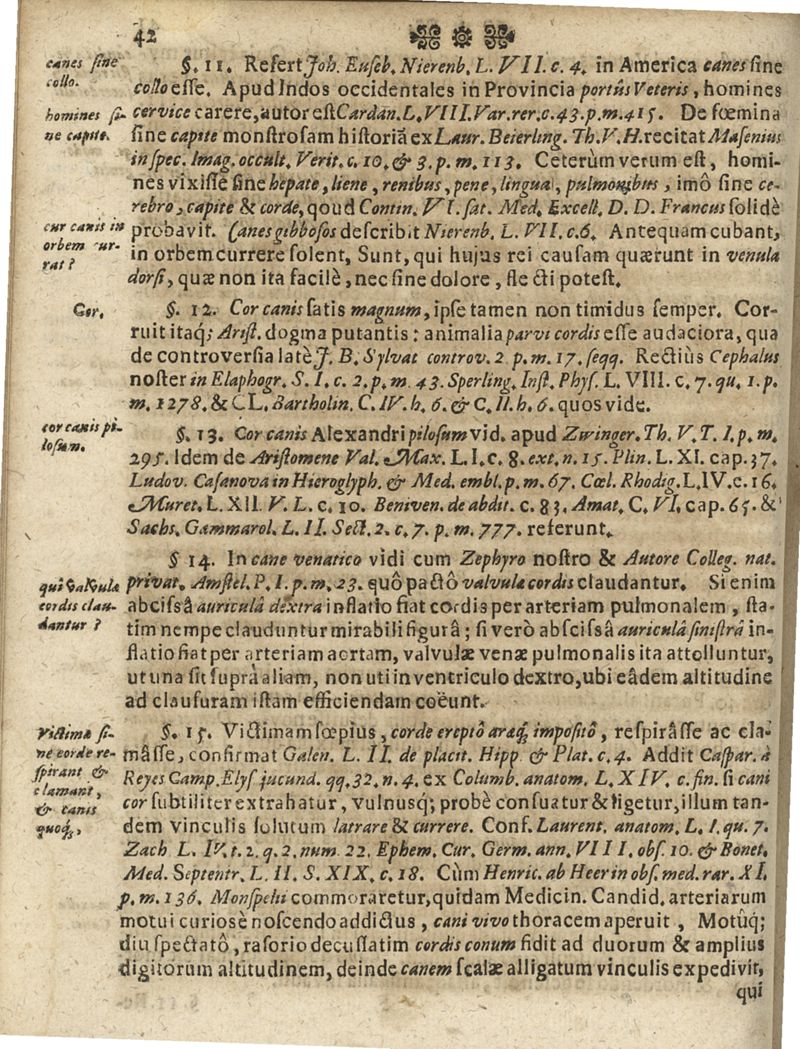 42
canes ſine
collo.
§. 11. Refert Joh. Euſeb. Nierenb. L. VII. c. 4. in America canes ſine
collo eſſe. Apud Indos occidentales in Provincia portûs Veteris, homines
homines ſi-
ne capite.
cervice carere, autor eſt Cardan. L. VIII. Var. rer. c. 43. p. m. 415. De fœmina
ſine capite monſtroſam hiſtoriã ex Laur. Beierling. Th. V. H. recitat Maſenius
in ſpec. Imag. occult. Verit. c. 10. & 3. p. m. 113. Ceterùm verum eſt, homi-
nes vixiſſe ſine hepate, liene, renibus, pene, lingua, pulmonibus, imô ſine ce-
rebro, capite & corde, qoud Contin. VI. ſat. Med. Excell. D. D. Francus ſolidè
cur canis in
orbem cur-
rat?
probavit. Canes gibboſos deſcribit Nierenb. L. VII. c. 6. Antequam cubant,
in orbem currere ſolent, Sunt, qui hujus rei cauſam quærunt in venula
dorſi, quæ non ita facilè, nec ſine dolore, fle cti poteſt.
Cor.
§. 12. Cor canis ſatis magnum, ipſe tamen non timidus ſemper. Cor-
ruit itaq; Ariſt. dogma putantis: animalia parvi cordis eſſe audaciora, qua
de controverſia latè J. B. Sylvat controv. 2. p. m. 17. ſeqq. Rectius Cephalus
noſter in Elaphogr. S. I. c. 2. p. m. 43. Sperling. Inſt. Phyſ. L. VIII. c. 7. qu. 1. p.
m. 1278. & CL. Bartholin. C. IV. h. 6. & C. II. h. 6. quos vide.
cor canis pi-
loſum.
§. 13. Cor canis Alexandri piloſum vid. apud Zwinger. Th. V. T. I. p. m.
295. Idem de Ariſtomene Val. Max. L. I. c. 8. ext. n. 15. Plin. L. XI. cap. 37.
Ludov. Caſanova in Hieroglyph. & Med. embl. p. m. 67. Cœl. Rhodig. L. IV. c. 16.
Muret. L. XII. V. L. c. 10. Beniven. de abdit. c. 83. Amat. C. VI. cap. 65. &
Sachs. Gammarol. L. II. Sect. 2. c. 7. p. m. 777. referunt.
§ 14. In cane venatico vidi cum Zephyro noſtro & Autore Colleg. nat.
qui valvulæ
cordis clau-
dantur?
privat. Amſtel. P. I. p. m. 23. quô pactô valvula cordis claudantur. Si enim
abciſsâ auriculâ dextra inflatio fiat cordis per arteriam pulmonalem, ſta-
tim nempe clauduntur mirabili figurâ; ſi verò abſciſsâ auriculâ ſiniſtrâ in-
flatio fiat per arteriam aortam, valvulæ venæ pulmonalis ita attolluntur,
ut una ſit ſuprà aliam, non uti in ventriculo dextro, ubi eâdem altitudine
ad clauſuram iſtam efficiendam coëunt.
Victima ſi-
ne corde re-
ſpirant &
clamant,
& canis
quoq;,
§. 15. Victimam ſœpius, corde ereptô aræq; impoſitô, reſpirâſſe ac cla-
mâſſe, confirmat Galen. L. II. de placit. Hipp. & Plat. c. 4. Addit Caſpar. à
Reyes Camp. Elyſ jucund. qq. 32. n. 4. ex Columb. anatom. L. XIV. c. fin. ſi cani
cor ſubtiliter extrahatur, vulnusq; probè conſuatur & ligetur, illum tan-
dem vinculis ſolutum latrare & currere. Conf. Laurent. anatom. L. I. qu. 7.
Zach. L. IV. t. 2. q. 2. num. 22. Ephem. Cur. Germ. ann. VIII. obſ. 10. & Bonet.
Med. Septentr. L. II. S. XIX. c. 18. Cùm Henric. ab Heer in obſ. med. rar. XI.
p. m. 136. Monſpelii commoraretur, quidam Medicin. Candid. arteriarum
motui curiosè noſcendo addictus, cani vivo thoracem aperuit, Motûq;
diu ſpectatô, raſorio decuſſatim cordis conum fidit ad duorum & amplius
digitorum altitudinem, deinde canem ſcalæ alligatum vinculis expedivit,
qui